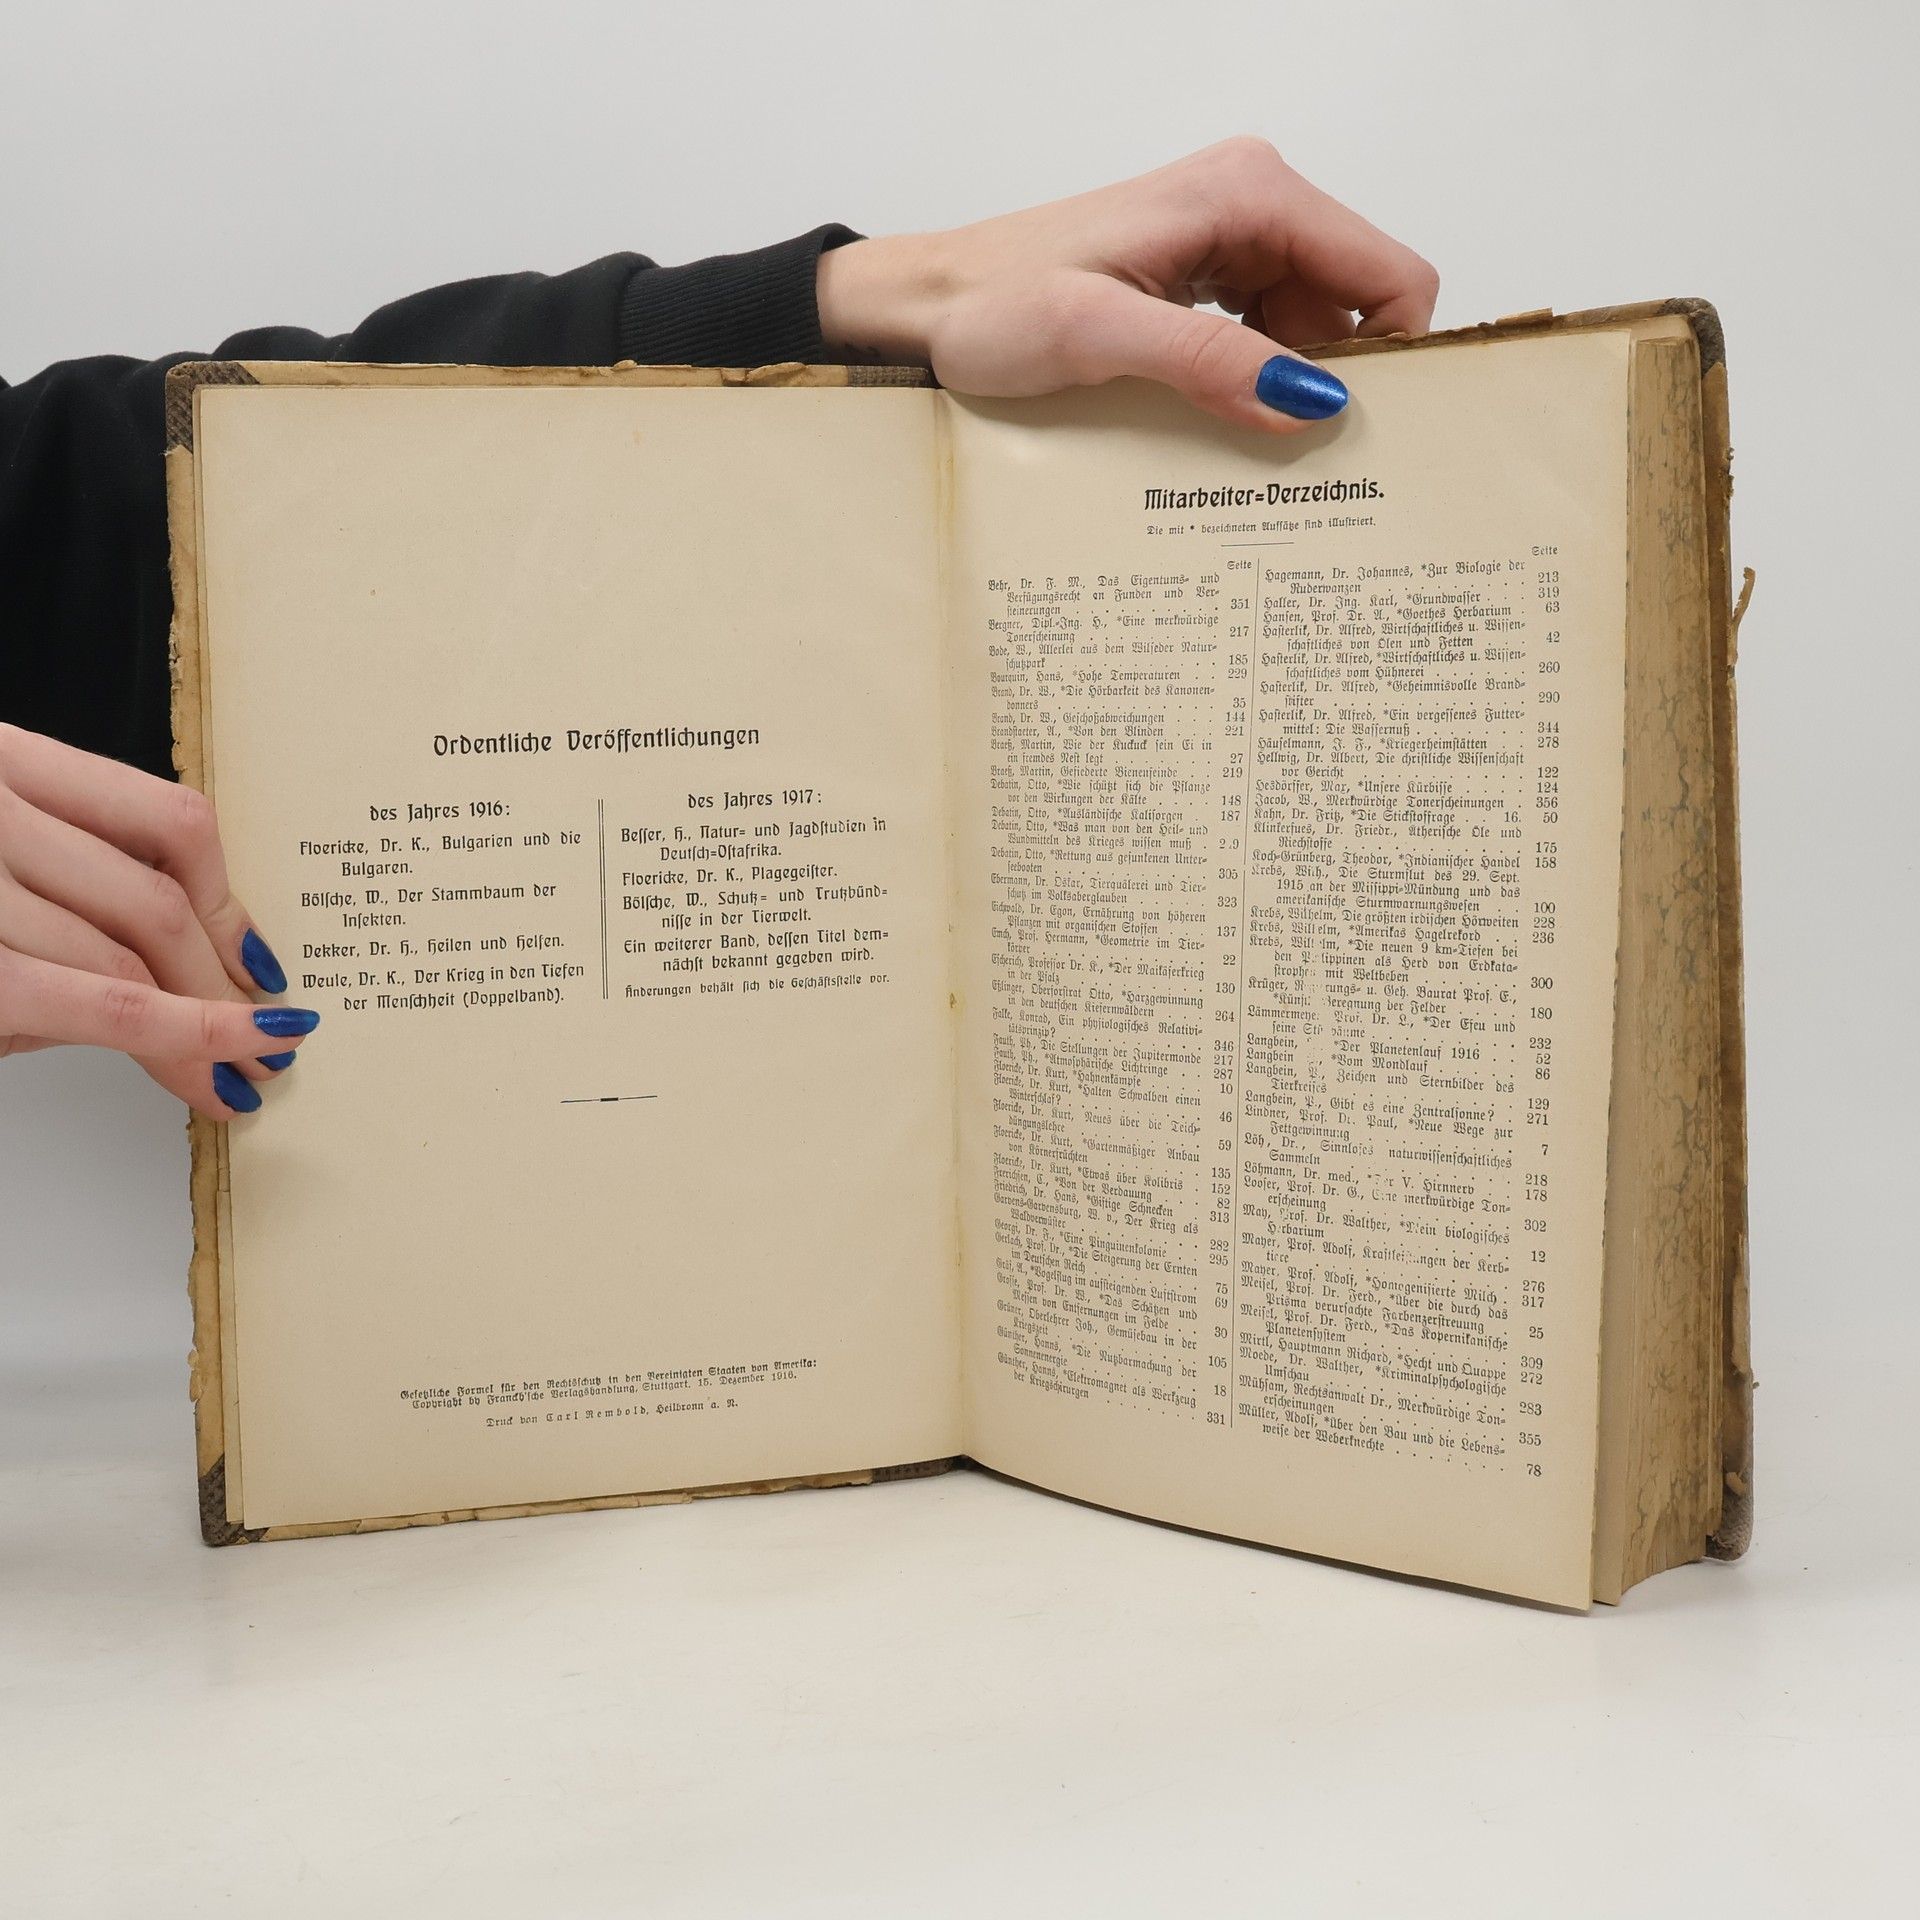 Ordentliche Veröffentlichungen
des Jahres 1916:
Floericke, Dr. K., Bulgarien und die
Bulgaren.
Bölsche, W., Der Stammbaum der
Insekten.
Dekker, Dr. H., Heilen und Helfen.
Weule, Dr. K., Der Krieg in den Tiefen
der Menschheit (Doppelband).
des Jahres 1917:
Besser, H., Natur- und Jagdstudien in
Deutsch-Ostafrika.
Floericke, Dr. K., Plagegeister.
Bölsche, W., Schutz- und Trutzbünd-
nisse in der Tierwelt.
Ein weiterer Band, dessen Titel dem-
nächst bekannt gegeben wird.
Änderungen behält sich die Geschäftsstelle vor.
Gesetzliche Formel für den Rechtsschutz in den Vereinigten Staaten von Amerika:
Copyright by Franckh'sche Verlagshandlung, Stuttgart. 15. Dezember 1916.
Druck von Carl Rembold, Heilbronn a. N.
Mitarbeiter-Verzeichnis.
Die mit * bezeichneten Aufsätze sind illustriert.
Seite
Behr, Dr. F. M., Das Eigentums- und
Verfügungsrecht an Funden und Ver-
steinerungen . . . . . . . . 351
Bergner, Dipl.-Ing. H., *Eine merkwürdige
Tonerscheinung . . . . . . . . 217
Bode, W., Allerlei aus dem Wilseder Natur-
schutzpark . . . . . . . . 185
Bourquin, Hans, *Hohe Temperaturen . . 229
Brand, Dr. W., *Die Hörbarkeit des Kanonen-
donners . . . . . . . . 35
Brand, Dr. W., Geschoßabweichungen . . . 144
Brandstaeter, A., *Von den Blinden . . . 221
Braeß, Martin, Wie der Kuckuck sein Ei in
ein fremdes Nest legt . . . . . 27
Braeß, Martin, Gefiederte Bienenfeinde . . 219
Debatin, Otto, *Wie schützt sich die Pflanze
vor den Wirkungen der Kälte . . . . 148
Debatin, Otto, *Ausländische Kalisorgen . 187
Debatin, Otto, *Was man von den Heil- und
Wundmitteln des Krieges wissen muß .
Debatin, Otto, *Rettung aus gesunkenen Unter-
seebooten . . . . . . . . 305
Ebermann, Dr. Oskar, Tierquälerei und Tier-
schutz im Volksaberglauben . . . . . 323
Eichwald, Dr. Egon, Ernährung von höheren
Pflanzen mit organischen Stoffen . . . 137
Emch, Prof. Hermann, *Geometrie im Tier-
körper . . . . . . . . 22
Escherich, Professor Dr. K., *Der Maikäferkrieg
in der Pfalz . . . . . . . . 130
Eßlinger, Oberforstrat Otto, *Harzgewinnung
in den deutschen Kiefernwäldern . . . 264
Falke, Konrad, Ein physiologisches Relativi-
tätsprinzip? . . . . . . . . 346
Fauth, Ph., Die Stellungen der Jupitermonde 217
Fauth, Ph., *Atmosphärische Lichtringe . . 287
Floericke, Dr. Kurt, *Hahnenkämpfe . . . 10
Floericke, Dr. Kurt, *Halten Schwalben einen
Winterschlaf? . . . . . . . . 46
Floericke, Dr. Kurt, Neues über die Teich-
düngungslehre . . . . . . . . 59
Floericke, Dr. Kurt, *Gartenmäßiger Anbau
von Körnerfrüchten . . . . . . 135
Floericke, Dr. Kurt, *Etwas über Kolibris . 152
Frerichsen, C., *Von der Verdauung . . . 82
Friedrich, Dr. Hans, *Giftige Schnecken . . 313
Garvens-Garvensburg, W. v., Der Krieg als
Waldverwüster . . . . . . . . 282
Georgi, Dr. F., *Eine Pinguinenkolonie . . 295
Gerlach, Prof. Dr., *Die Steigerung der Ernten
im Deutschen Reich . . . . . . 75
Gräf, A., *Vogelflug im aufsteigenden Luftstrom 69
Grosse, Prof. Dr. W., *Das Schätzen und
Messen von Entfernungen im Felde . . 30
Grüner, Oberlehrer Joh., Gemüsebau in der
Kriegszeit . . . . . . . . 105
Günther, Hanns, *Die Nutzbarmachung der
Sonnenenergie . . . . . . . . 18
Günther, Hanns, *Elektromagnet als Werkzeug
der Kriegschirurgen . . . . . . 331
Seite
Hagemann, Dr. Johannes, *Zur Biologie der
Ruderwanzen . . . . . . . . 213
Haller, Dr. Ing. Karl, *Grundwasser . . . 319
Hansen, Prof. Dr. A., *Goethes Herbarium . 63
Hasterlik, Dr. Alfred, Wirtschaftliches u. Wissen-
schaftliches von Ölen und Fetten . . . 42
Hasterlik, Dr. Alfred, *Wirtschaftliches u. Wissen-
schaftliches vom Hühnerei . . . . . 260
Hasterlik, Dr. Alfred, *Geheimnisvolle Brand-
stifter . . . . . . . . 290
Hasterlik, Dr. Alfred, *Ein vergessenes Futter-
mittel: Die Wassernuß . . . . . . 344
Häuselmann, J. F., *Kriegerheimstätten . . 278
Hellwig, Dr. Albert, Die christliche Wissenschaft
vor Gericht . . . . . . . . 122
Hesdörffer, Max, *Unsere Kürbisse . . . 124
Jacob, W., Merkwürdige Tonerscheinungen . 356
Kahn, Dr. Fritz, *Die Stickstoffrage . . 16. 50
Klinkerfues, Dr. Friedr., Ätherische Öle und
Riechstoffe . . . . . . . . 175
Koch-Grünberg, Theodor, *Indianischer Handel 158
Krebs, Wilh., Die Sturmflut des 29. Sept.
1915 an der Missippi-Mündung und das
amerikanische Sturmwarnungswesen . . 100
Krebs, Wilhelm, Die größten irdischen Hörweiten 228
Krebs, Wilhelm, *Amerikas Hagelrekord . . 236
Krebs, Wilhelm, *Die neuen 9 km-Tiefen bei
den Philippinen als Herd von Erdkata-
strophen mit Weltbeben . . . . . . 300
Krüger, Regierungs- u. Geh. Baurat Prof. E.,
*Künstl. Beregnung der Felder . . . 180
Lämmermeyer, Prof. Dr. L., *Der Efeu und
seine Stützbäume . . . . . . . . 232
Langbein, *Der Planetenlauf 1916 . . . 52
Langbein *Vom Mondlauf . . . . . 86
Langbein, P., Zeichen und Sternbilder des
Tierkreises . . . . . . . . 129
Langbein, P., Gibt es eine Zentralsonne? . 271
Lindner, Prof. Dr. Paul, *Neue Wege zur
Fettgewinnung . . . . . . . . 7
Löh, Dr., Sinnloses naturwissenschaftliches
Sammeln . . . . . . . . 218
Löhmann, Dr. med., *Der V. Hirnnerv . . 178
Looser, Prof. Dr. G., Eine merkwürdige Ton-
erscheinung . . . . . . . . 302
May, Prof. Dr. Walther, *Mein biologisches
Herbarium . . . . . . . . 12
Mayer, Prof. Adolf, Kraftleistungen der Kerb-
tiere . . . . . . . . 276
Mayer, Prof. Adolf, *Homogenisierte Milch . 317
Meisel, Prof. Dr. Ferd., *Über die durch das
Prisma verursachte Farbenzerstreuung . 25
Meisel, Prof. Dr. Ferd., *Das Kopernikanische
Planetensystem . . . . . . . . 309
Mirtl, Hauptmann Richard, *Hecht und Quappe 272
Moede, Dr. Walther, *Kriminalpsychologische
Umschau . . . . . . . . 283
Mühsam, Rechtsanwalt Dr., Merkwürdige Ton-
erscheinungen . . . . . . . . 355
Müller, Adolf, *Über den Bau und die Lebens-
weise der Weberknechte . . . . . . 78